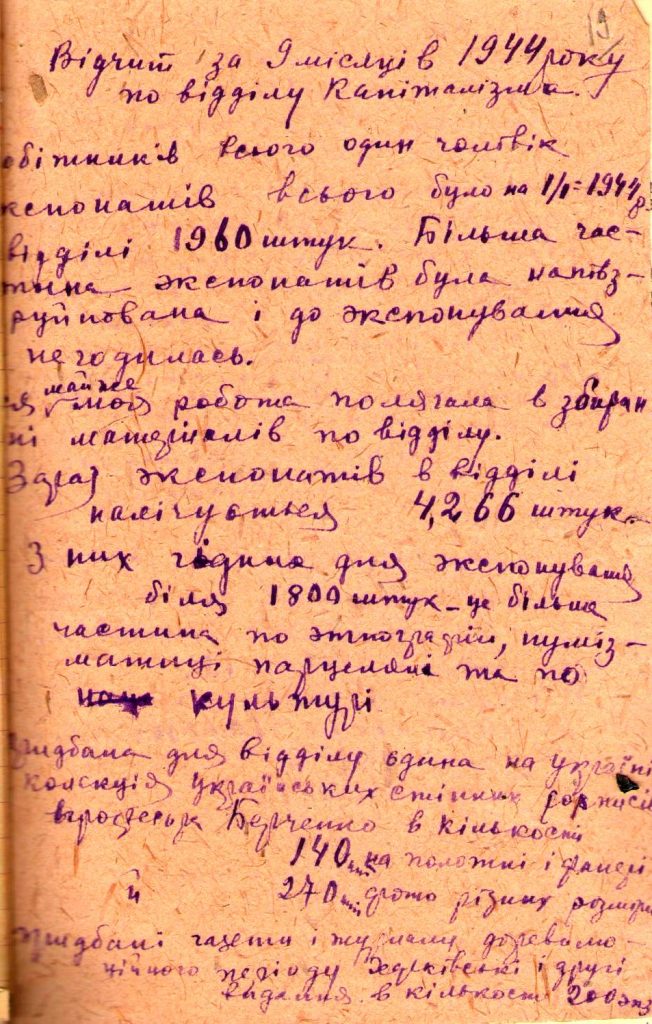 19
Відчит за 9 місяців 1944 року
по відділу Капіталізма.
обітників всього один чоловік
кспонатів всього було на 1/I=1944 р
відділі 1960 штук. Більша час-
тина экспонатів була напівз-
руйнована і до экспонування
негодилась.
ся майже моя робота полягала в збиран
ні матеріалів по відділу.
Зараз экспонатів в відділі
налічується 4,266 штук.
З них гідних для экспонування
біля 1800 штук - це більша
частина по этнографії, нуміз-
матиці парцеляні та по
культурі
ридбана для відділу єдина на україні
колекція українських стінних розписів
професора Берченко в кількості
140 шт на полотні і фанері
й 270 шт фото різних розмірів
придбані газети і журнали дорево-
ційного періоду Харківські і другі
видання в кількості 200 экз